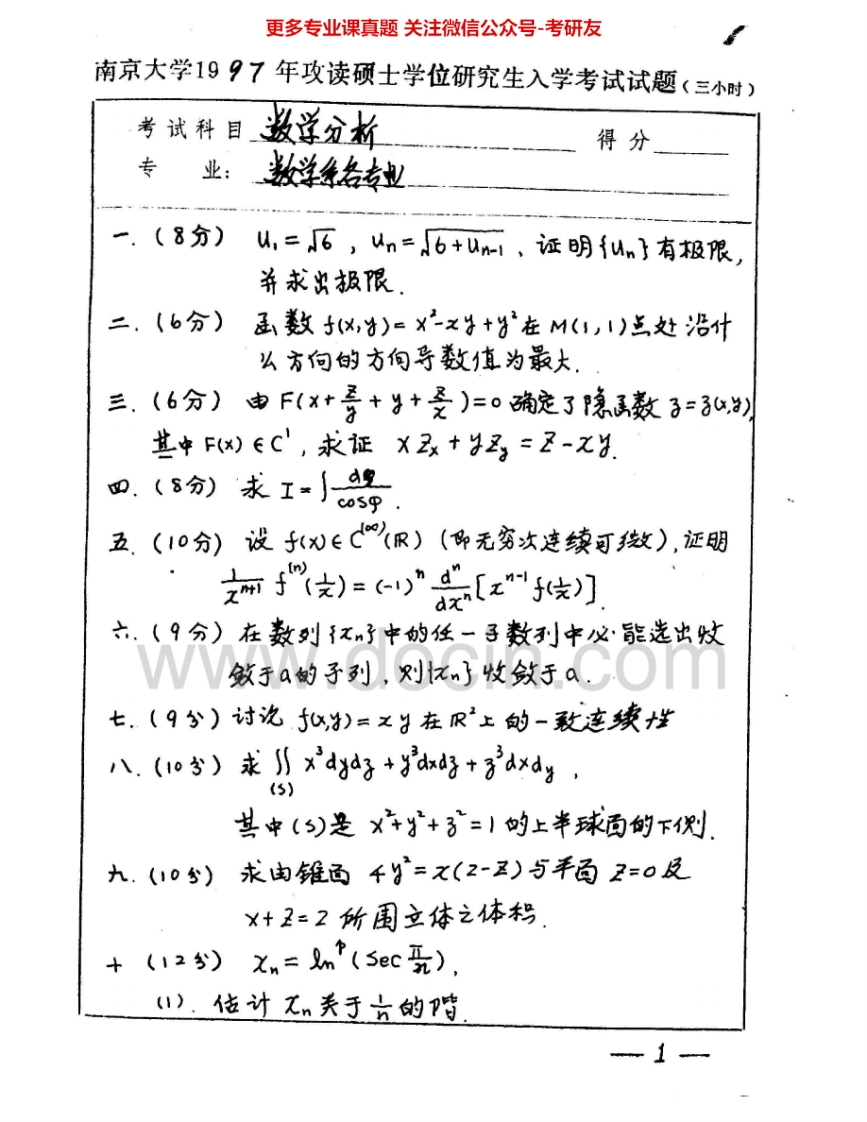 更多专业课真题 关注微信公众号-考研友
南京大学1997年攻读硕士学位研究生入学考试试题(三小时)
考试科目 数学分析 得分
专 业: 数学系各专业
一.(8分) u₁=√6, uₙ=√(6+uₙ₋₁), 证明{uₙ}有极限,
并求出极限.
二.(6分) 函数 f(x,y)=x²-xy+y² 在 M(1,1)点处沿什
么方向的方向导数值为最大.
三.(6分) 由 F(x+z/y+y+z/x)=0 确定了隐函数 z=z(x,y),
其中 F(x)∈C¹, 求证 xZx+yZy=Z-xy.
四.(8分) 求 I=∫dφ/cosφ.
五.(10分) 设 f(x)∈C^(∞)(ℝ) (即无穷次连续可微), 证明
1/xⁿ⁺¹ f⁽ⁿ⁾(1/x)=(-1)ⁿ dⁿ/dxⁿ[xⁿ⁻¹f(1/x)].
六.(9分) 在数列{xₙ}中的任一子数列中必能选出收
敛于a的子列, 则{xₙ}收敛于a.
www.docin.com
七.(9分) 讨论 f(x,y)=xy 在 ℝ² 上的一致连续性
八.(10分) 求 ∬(S) x³dydz+y³dxdz+z³dxdy,
其中(S)是 x²+y²+z²=1 的上半球面的下侧.
九.(10分) 求由锥面 4y²=x(2-z)与平面 z=0及
x+z=2 所围立体之体积.
十 (12分) xₙ=lnᵖ(sec π/n),
(1). 估计 xₙ 关于 1/n 的阶.
— 1 —